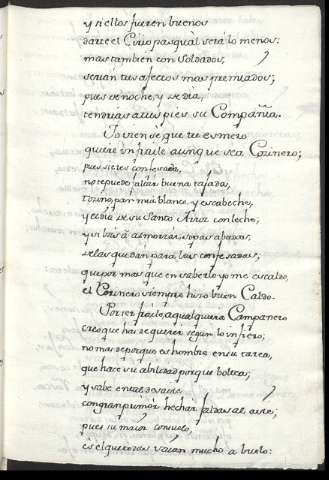 y si ellos fueren buenos
darte el Cirio pasqual será lo menos:
mas tambien con Soldados,
serian tus afectos mas premiados;
pues de noche, y de dia,
tendrias a tus pies su Compañia.
Yo bien se que te esmero
quiere un fraile aunque sea Cosinero;
pues si eres confesada,
no te puede faltar buena tajada,
tosino, pan mui blanco, y escabeche,
y el dia de su Santo Arroz con leche,
y un bis a almorzar sopas abadas,
de las que dan para las confesadas,
que por mas que en saberlo yo me escaldo,
el Cosinero siempre hiso buen Caldo.
Por ser fraile, a qualquiera Campanero
creo que has de querer segun lo infiero;
no mas de porque es hombre en su tarea,
que hace su abilidad porque boltea;
y sabe
con gran primor hechar faldas al aire;
pues su maior consuelo,
es el quereros vaian mucho a buelo: